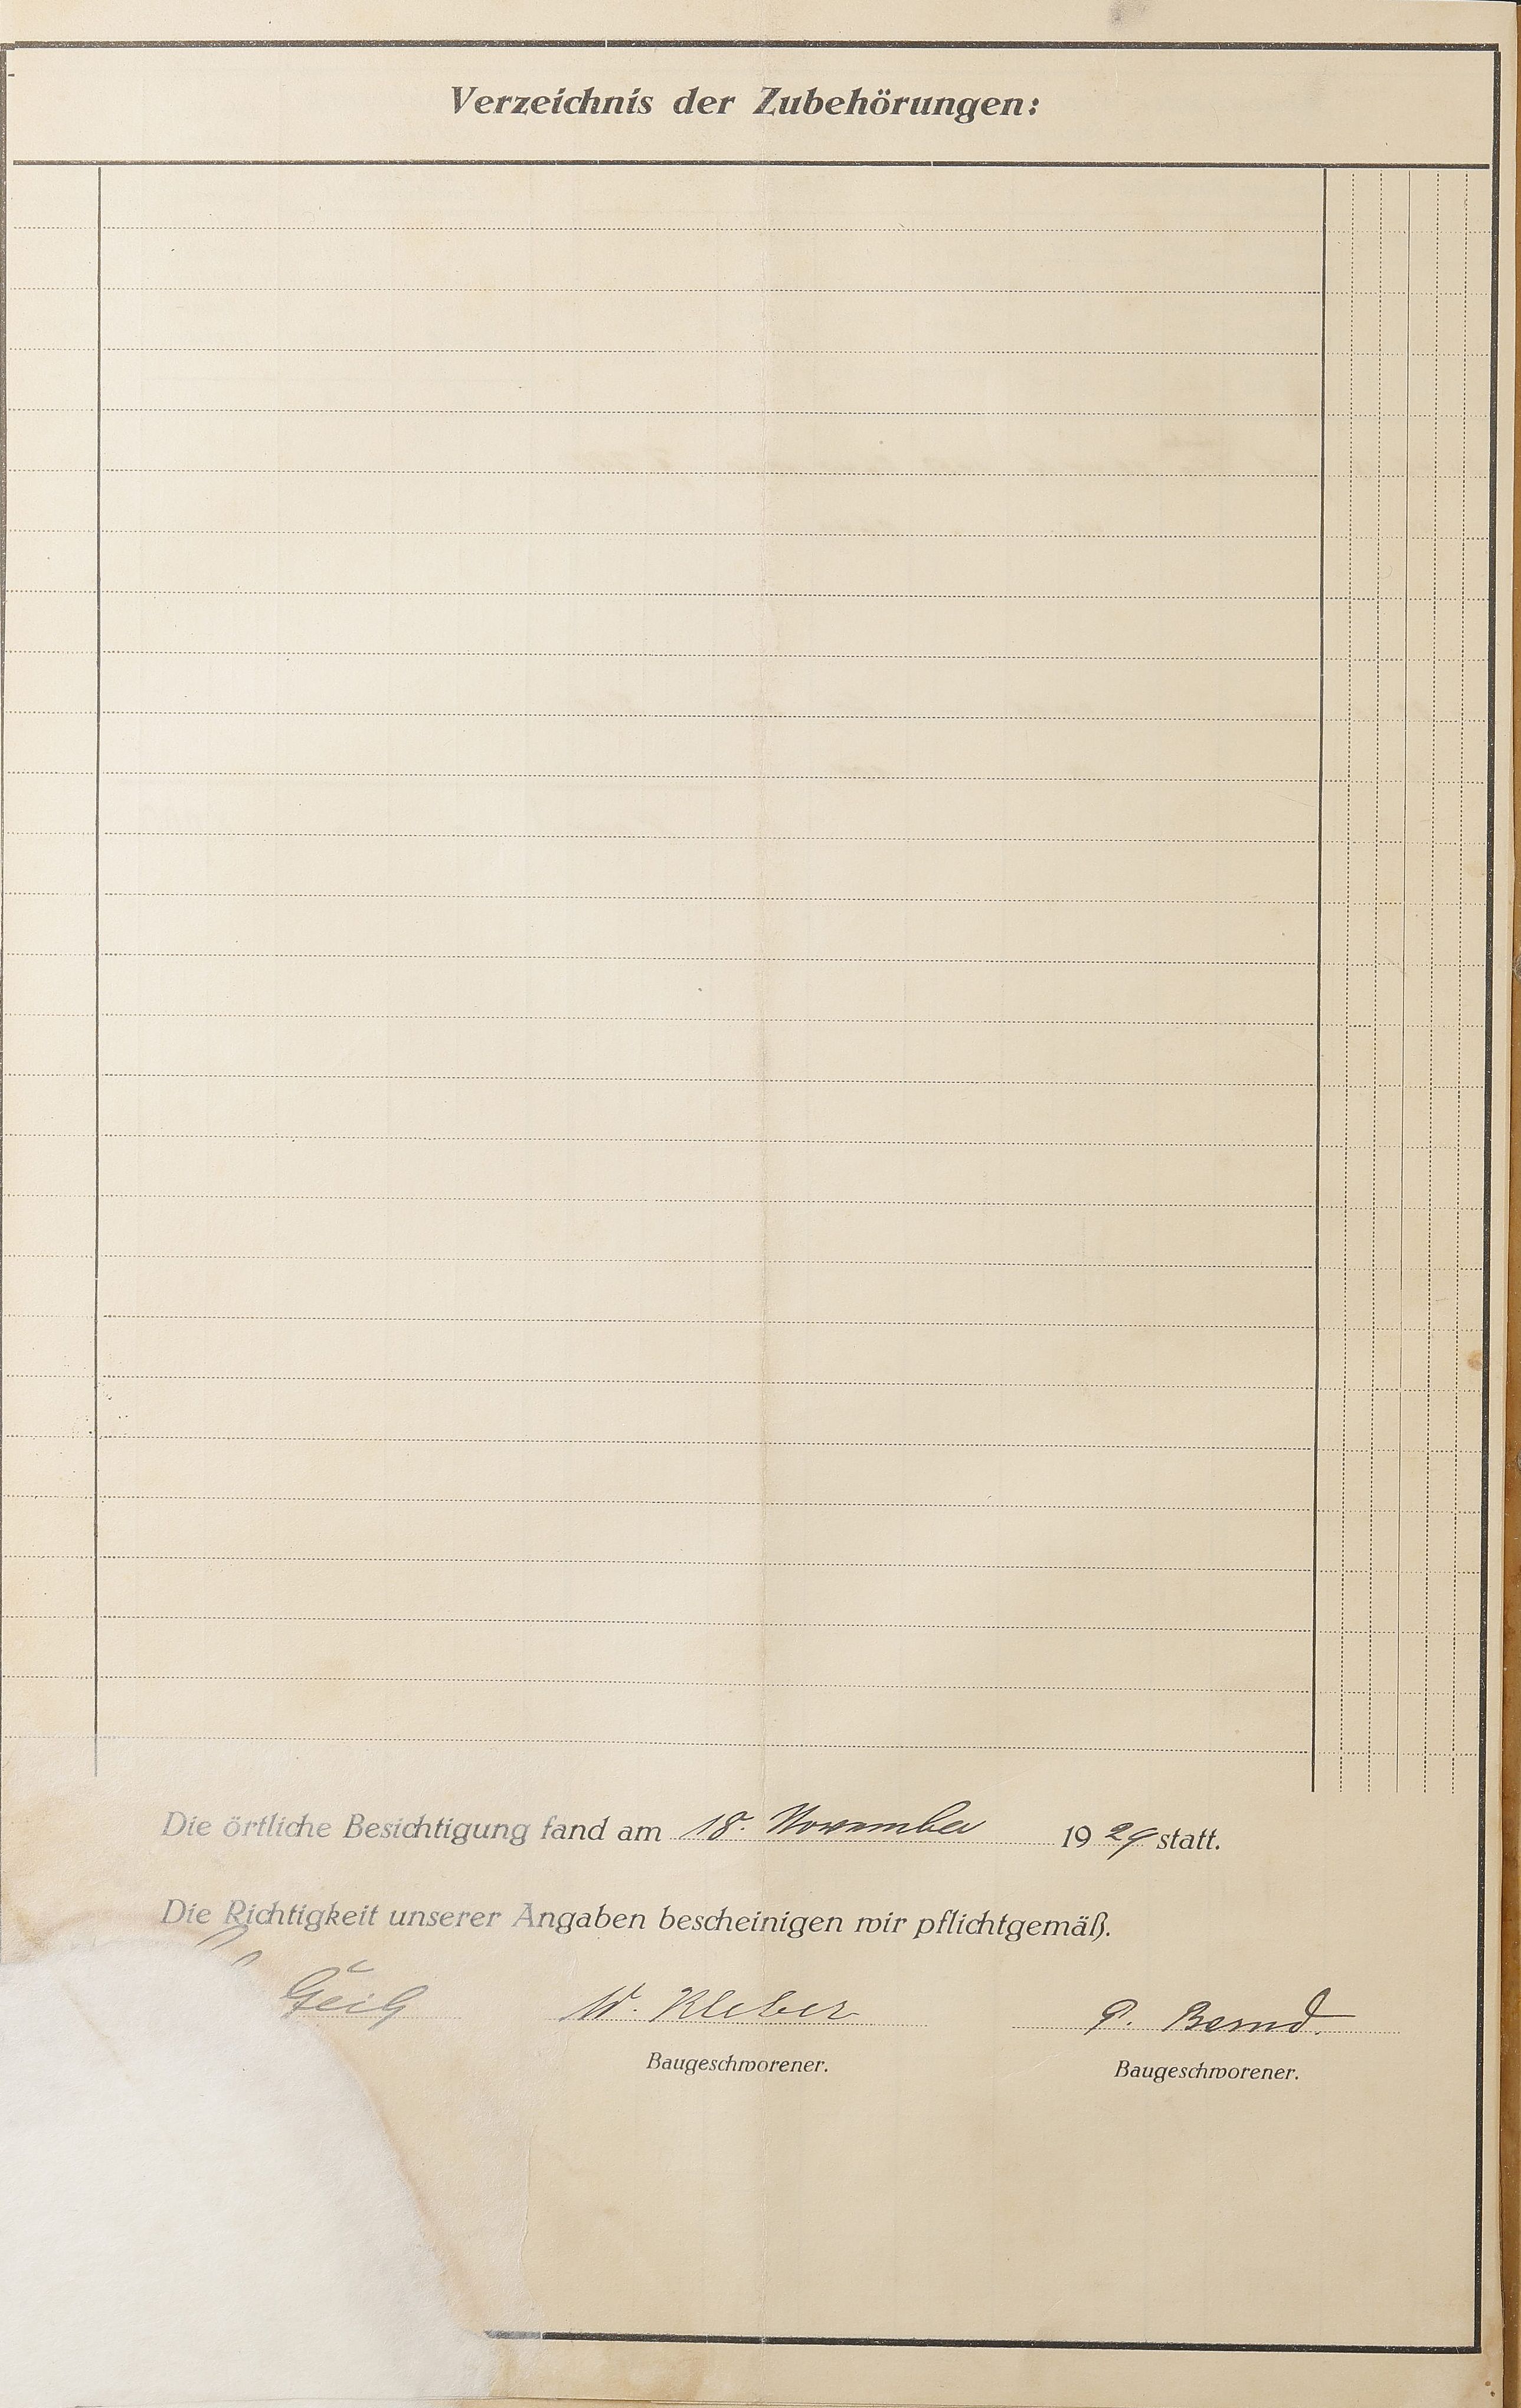 Verzeichnis der Zubehörungen:
Die örtliche Besichtigung fand am 18. November 1929 statt.
Die Richtigkeit unserer Angaben bescheinigen wir pflichtgemäß.
W. Kleber P. Bernd.
Baugeschworener. Baugeschworener.